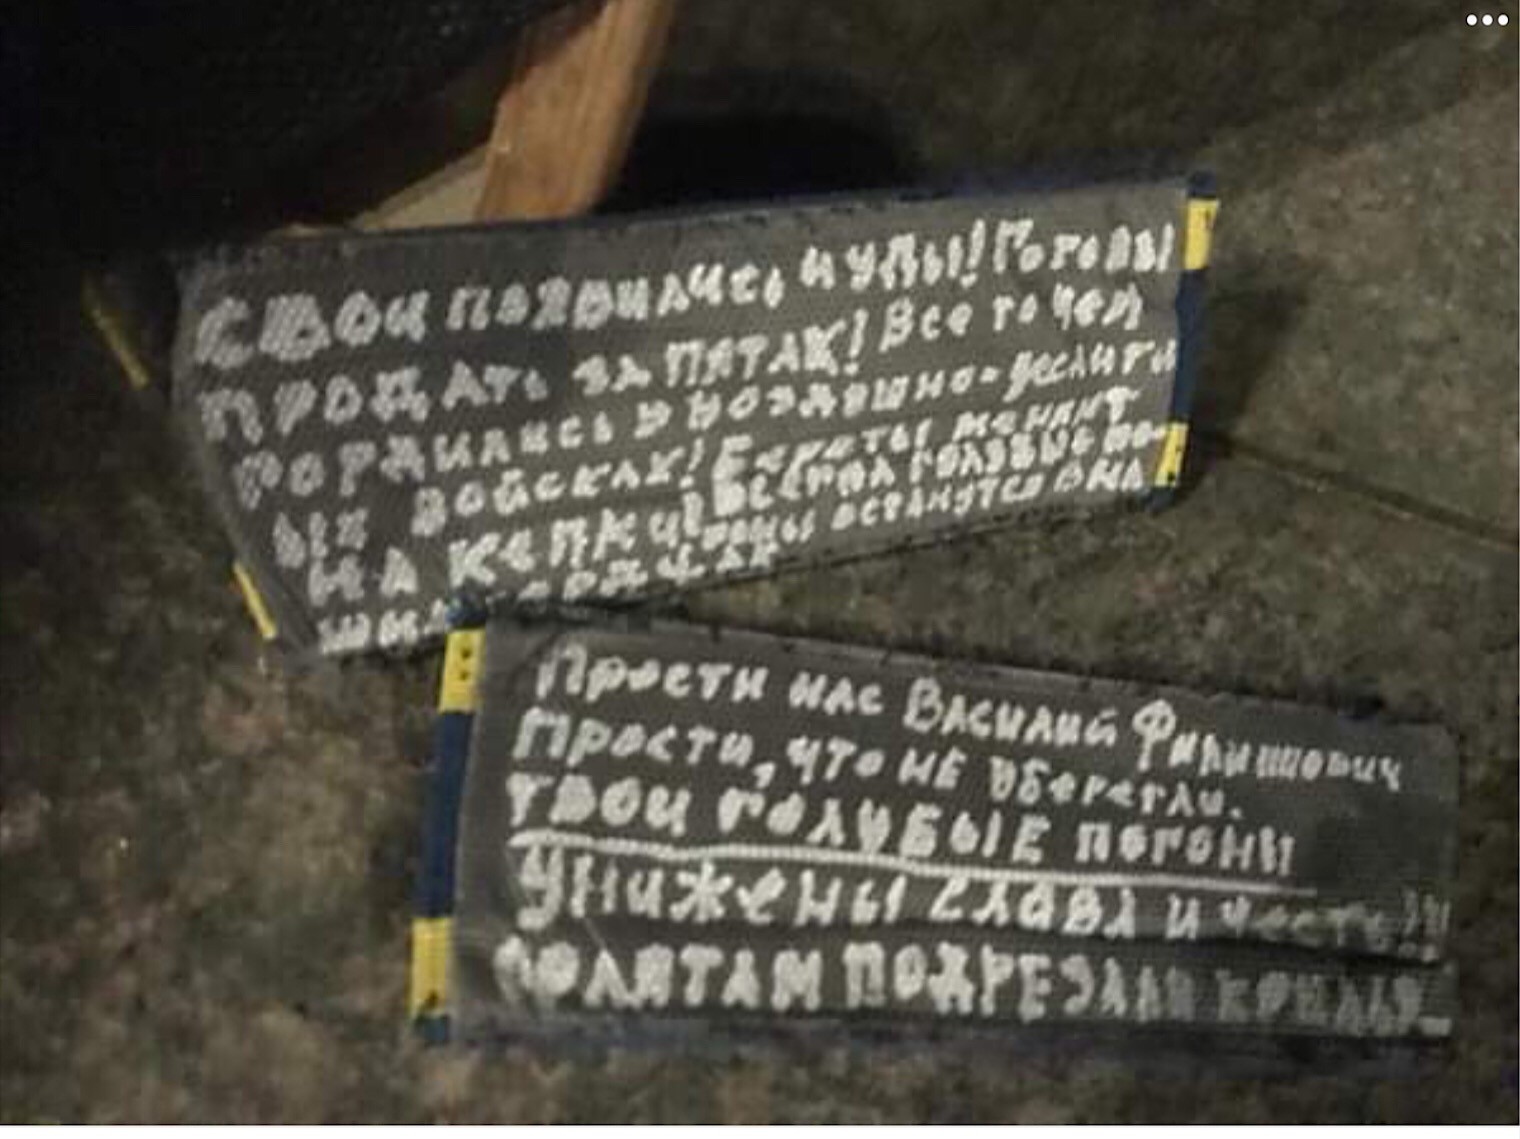 СВОИ ПОЯВИЛИСЬ ИУДЫ! Готовы
ПРОДАТЬ ЗА ПЯТАК! Все то чем
ГОРДИЛИСЬ В ВОЗДУШНО-десантн
ЫХ ВОЙСКАХ! Береты менят
НА КЕПКИ! ВСЕГДА ГОЛУБЫЕ по-
гоны останутся в на
ших сердцах
Прости нас Василий Филиппович
Прости, что не уберегли.
ТВОИ ГОЛУБЫЕ ПОГОНЫ
УНИЖЕНЫ СЛАВА И честь!!!
ПОДРЕЗАЛИ КРЫЛЬЯ